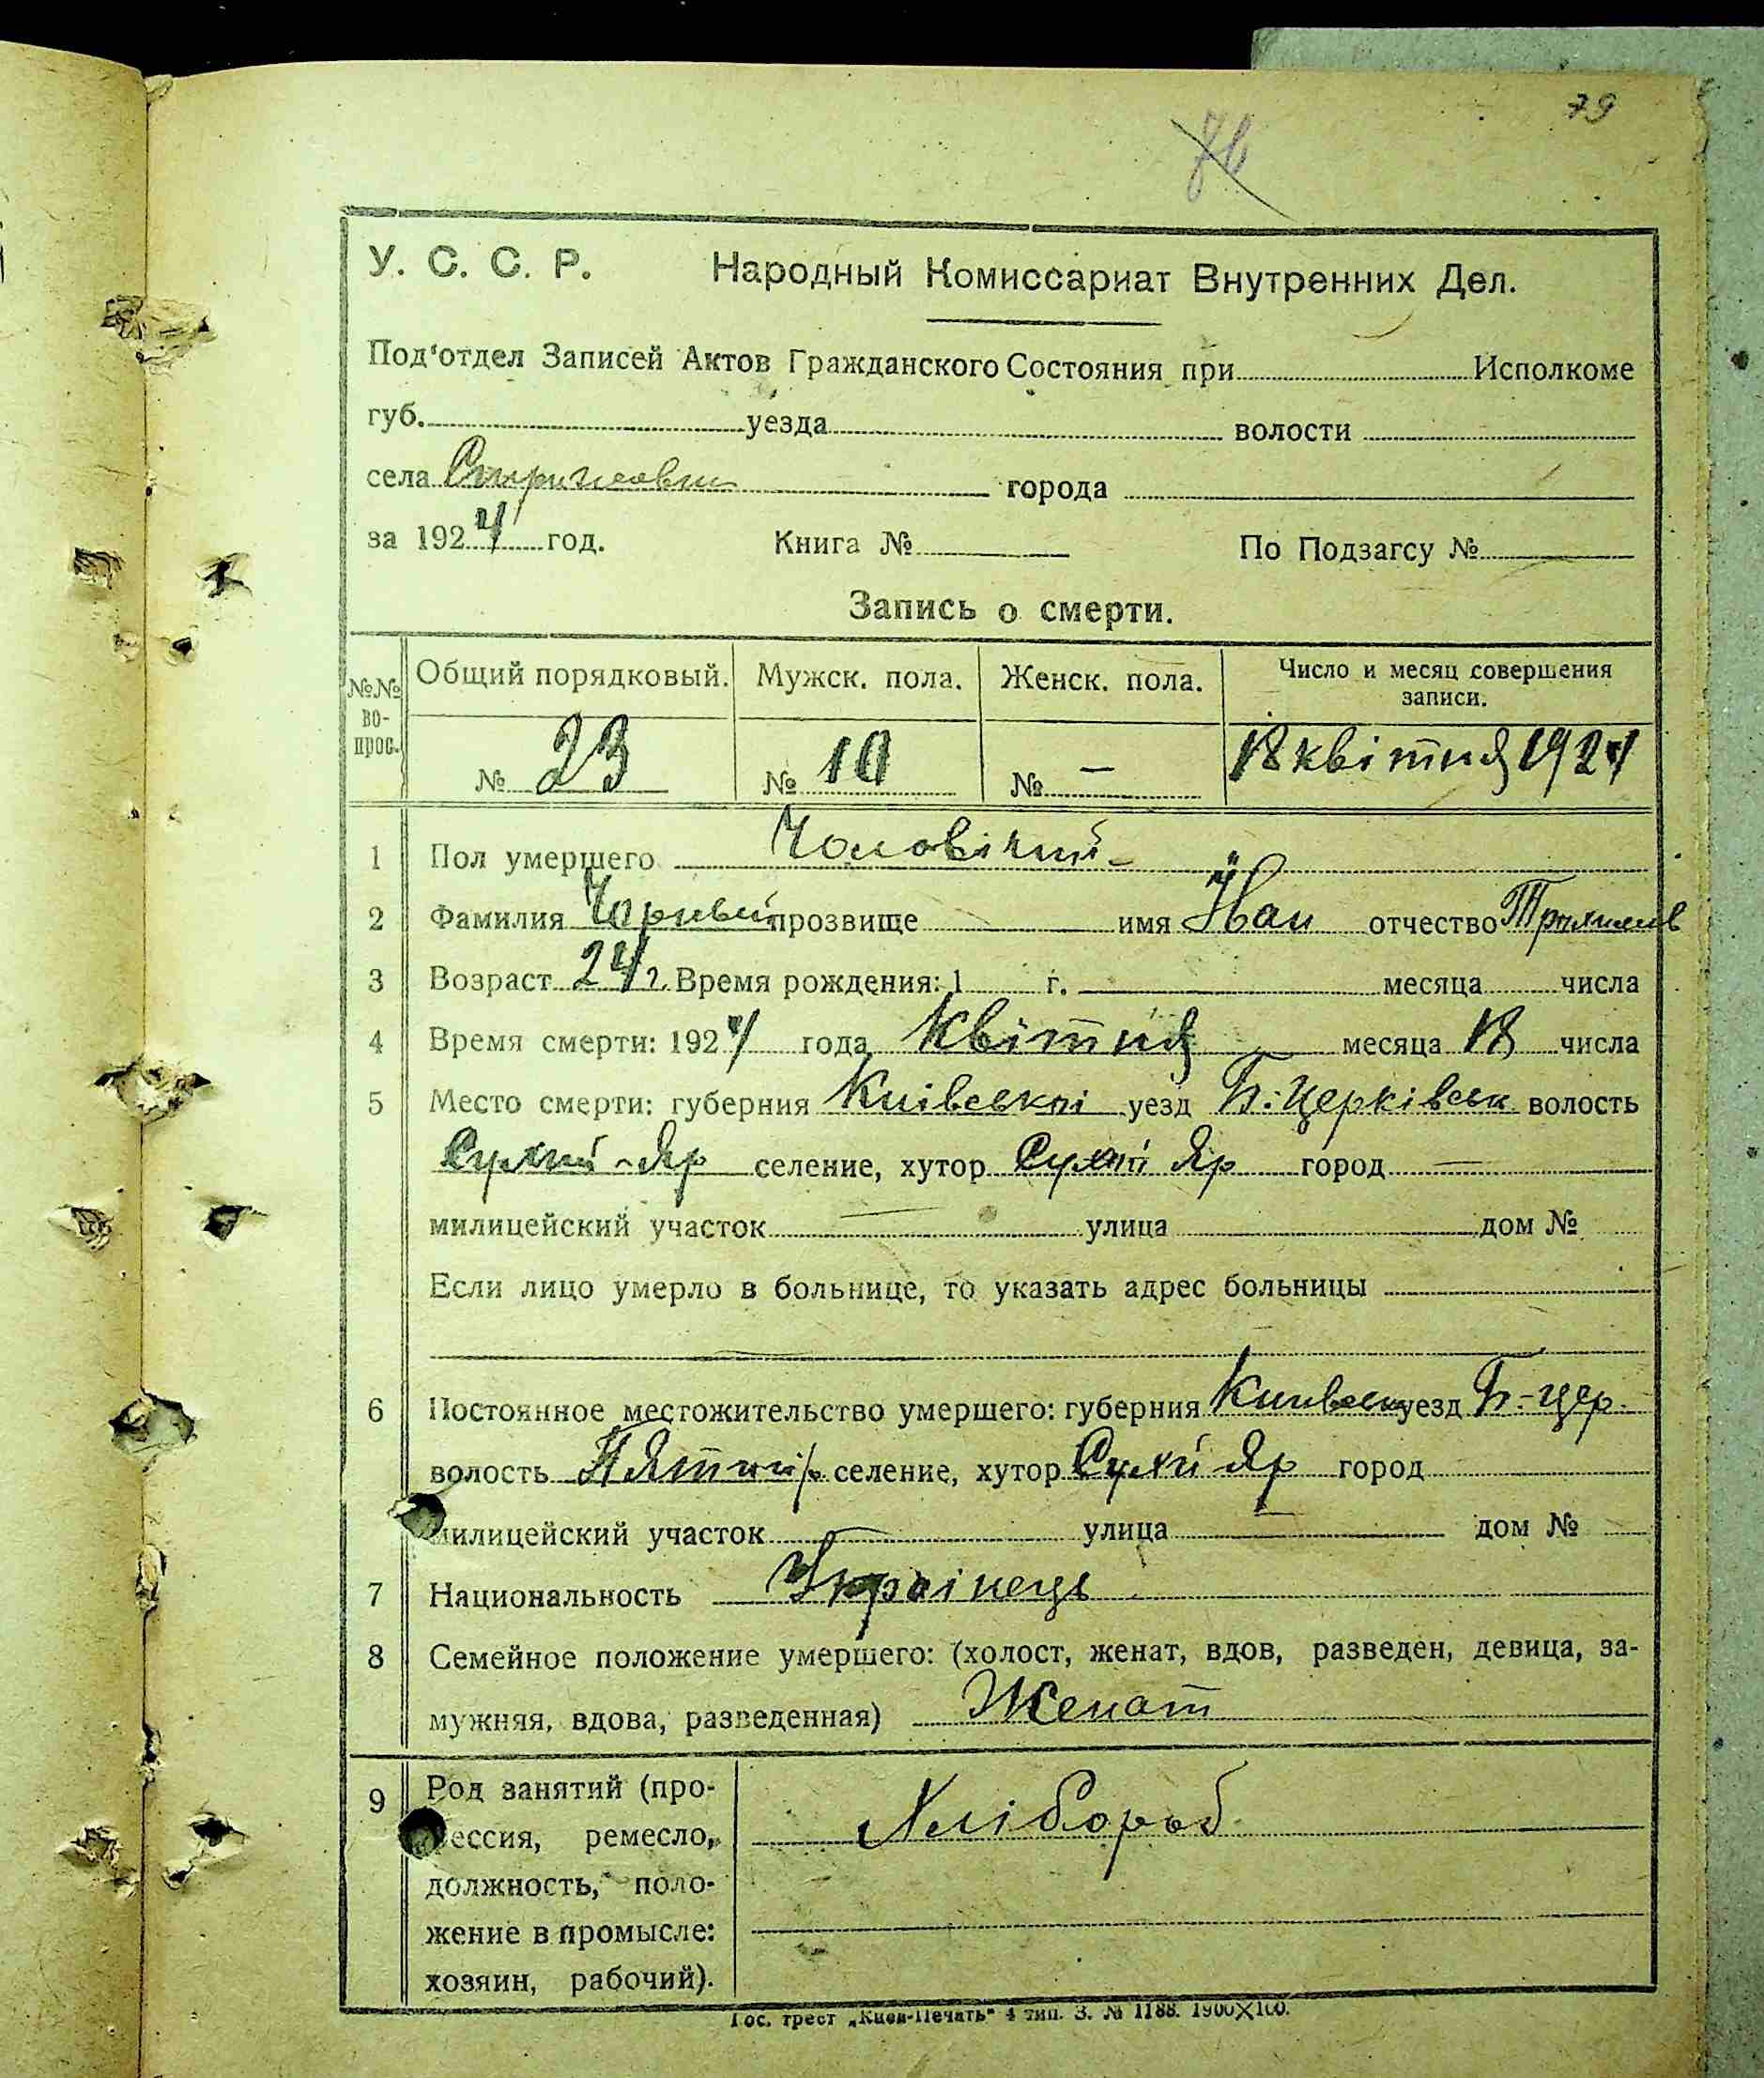 79
У. С. С. Р. Народный Комиссариат Внутренних Дел.
Под'отдел Записей Актов Гражданского Состояния при Исполкоме
губ. уезда волости
села города
за 1924 год. Книга № По Подзагсу №
Запись о смерти.
№№ вопрос. Общий порядковый. Мужск. пола. Женск. пола. Число и месяц совершения записи.
№ 23 № 10 № — 18 квітня 1924
1 Пол умершего Чоловічий
2 Фамилия прозвище имя Йван отчество
3 Возраст 24 г. Время рождения: 1 г. месяца числа
4 Время смерти: 1924 года Квітня месяца 18 числа
5 Место смерти: губерния Київської уезд Б.-Церківськ волость
Сухий-Яр селение, хутор Сухий Яр город —
милицейский участок — улица дом №
Если лицо умерло в больнице, то указать адрес больницы
6 Постоянное местожительство умершего: губерния Київськ уезд Б.-Цер.
волость селение, хутор Сухий Яр город
милицейский участок улица — дом №
7 Национальность Українець
8 Семейное положение умершего: (холост, женат, вдов, разведен, девица, за-
мужняя, вдова, разведенная) Женат
9 Род занятий (про- Хлібороб
фессия, ремесло,
должность, поло-
жение в промысле:
хозяин, рабочий).
Гос. трест „Киев-Печать" 4 тип. З. № 1188. 1900×100.